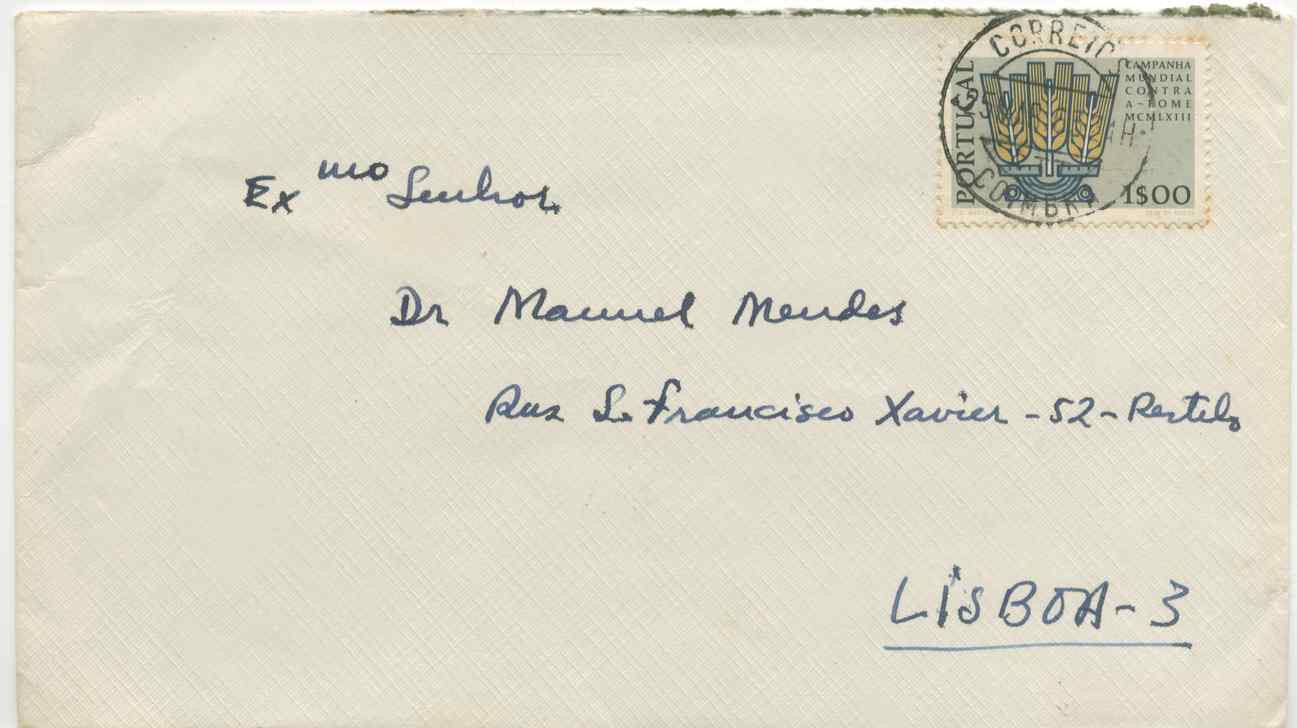 CORREIOS
PORTUGAL
CAMPANHA
MUNDIAL
CONTRA
A-FOME
MCMLXIII
1$00
COIMBRA
Ex mo Senhor
Dr Manuel Mendes
Rua S. Francisco Xavier - 52 - Restelo
LISBOA - 3